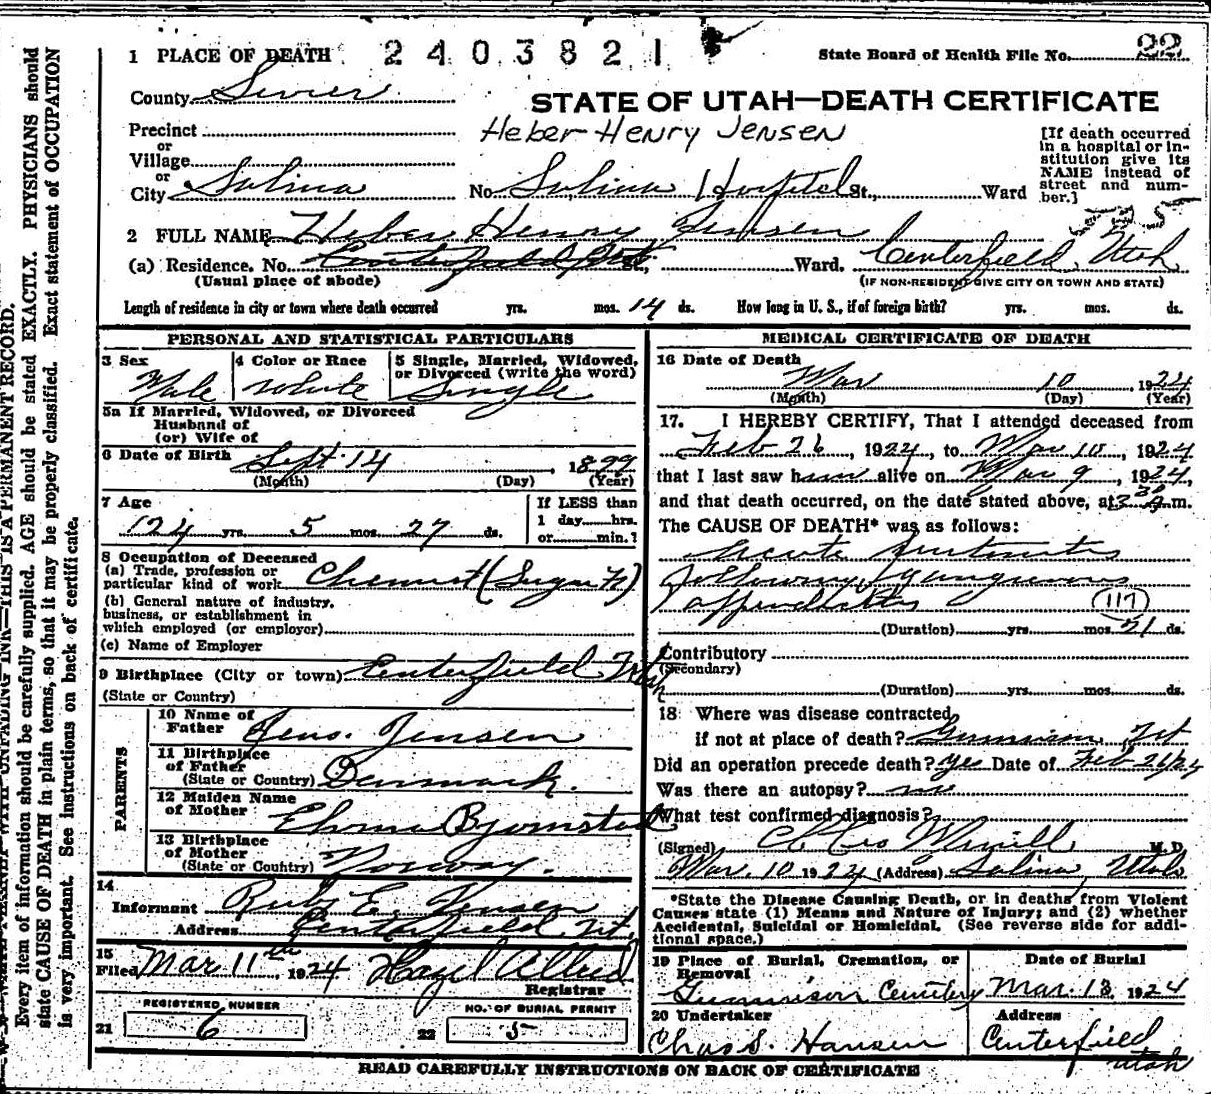 1 PLACE OF DEATH 2403821 State Board of Health File No. 22
County Sevier
STATE OF UTAH—DEATH CERTIFICATE
Precinct
Heber Henry Jensen
or
Village
or
City Salina No. Salina Hospital St., Ward
[If death occurred
in a hospital or in-
stitution give its
NAME instead of
street and num-
ber.]
2 FULL NAME Heber Henry Jensen
(a) Residence. No. Centerfield St., Ward. Centerfield, Utah
(Usual place of abode) (IF NON-RESIDENT GIVE CITY OR TOWN AND STATE)
Length of residence in city or town where death occurred yrs. mos. 14 ds. How long in U. S., if of foreign birth? yrs. mos. ds.
PERSONAL AND STATISTICAL PARTICULARS
3 Sex
Male
4 Color or Race
White
5 Single, Married, Widowed,
or Divorced (write the word)
Single
5a If Married, Widowed, or Divorced
Husband of
(or) Wife of
6 Date of Birth
Sept 14, 1899
(Month) (Day) (Year)
7 Age
124 yrs. 5 mos. 27 ds.
If LESS than
1 day hrs.
or min.?
8 Occupation of Deceased
(a) Trade, profession or
particular kind of work Chemist (Sugar
(b) General nature of industry,
business, or establishment in
which employed (or employer)
(c) Name of Employer
9 Birthplace (City or town) Centerfield Utah
(State or Country)
PARENTS
10 Name of
Father Jens. Jensen
11 Birthplace
of Father
(State or Country) Denmark.
12 Maiden Name
of Mother
13 Birthplace
of Mother
(State or Country) Norway.
14
Informant Ruby E. Jensen
Address Centerfield Ut.
15
Filed Mar 11th, 1924 Hazel Allred
Registrar
REGISTERED NUMBER
21 6
NO. OF BURIAL PERMIT
22 5
MEDICAL CERTIFICATE OF DEATH
16 Date of Death
Mar 10, 1924
(Month) (Day) (Year)
17. I HEREBY CERTIFY, That I attended deceased from
Feb 26, 1924, to Mar 10, 1924
that I last saw him alive on Mar 9, 1924,
and that death occurred, on the date stated above, at 3 30 A m.
The CAUSE OF DEATH* was as follows:
Acute peritonitis
following gangrenous
appendicitis 117
(Duration) yrs. mos. 21 ds.
Contributory
(Secondary)
(Duration) yrs. mos. ds.
18 Where was disease contracted
if not at place of death? Gunnison, Ut
Did an operation precede death? yes Date of Feb 26/24
Was there an autopsy? no
What test confirmed diagnosis?
(Signed) Merrill M. D.
Mar. 10 1924 (Address) Salina, Utah
*State the Disease Causing Death, or in deaths from Violent
Causes state (1) Means and Nature of Injury; and (2) whether
Accidental, Suicidal or Homicidal. (See reverse side for addi-
tional space.)
19 Place of Burial, Cremation, or
Removal
Gunnison Cemetery
Date of Burial
Mar. 13, 1924
20 Undertaker
Chas S. Hansen
Address
Centerfield
Utah
READ CAREFULLY INSTRUCTIONS ON BACK OF CERTIFICATE
THIS IS A PERMANENT RECORD.
Every item of information should be carefully supplied. AGE should be stated EXACTLY. PHYSICIANS should
state CAUSE OF DEATH in plain terms, so that it may be properly classified. Exact statement of OCCUPATION
is very important. See instructions on back of certificate.